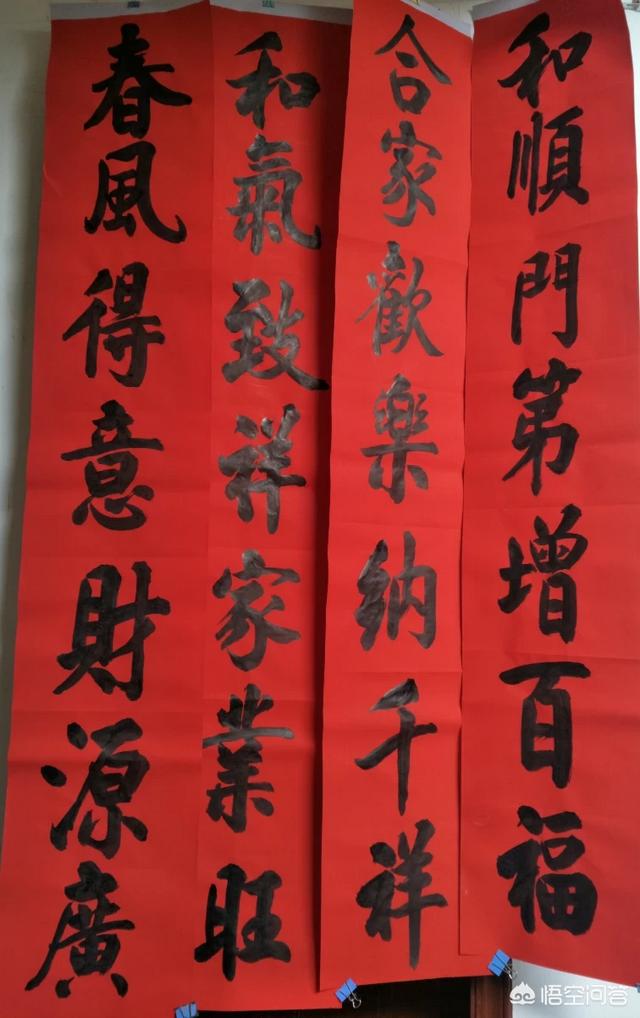 和順門第增百福
合家歡樂納千祥
和氣致祥家業旺
春風得意財源廣
悟空问答